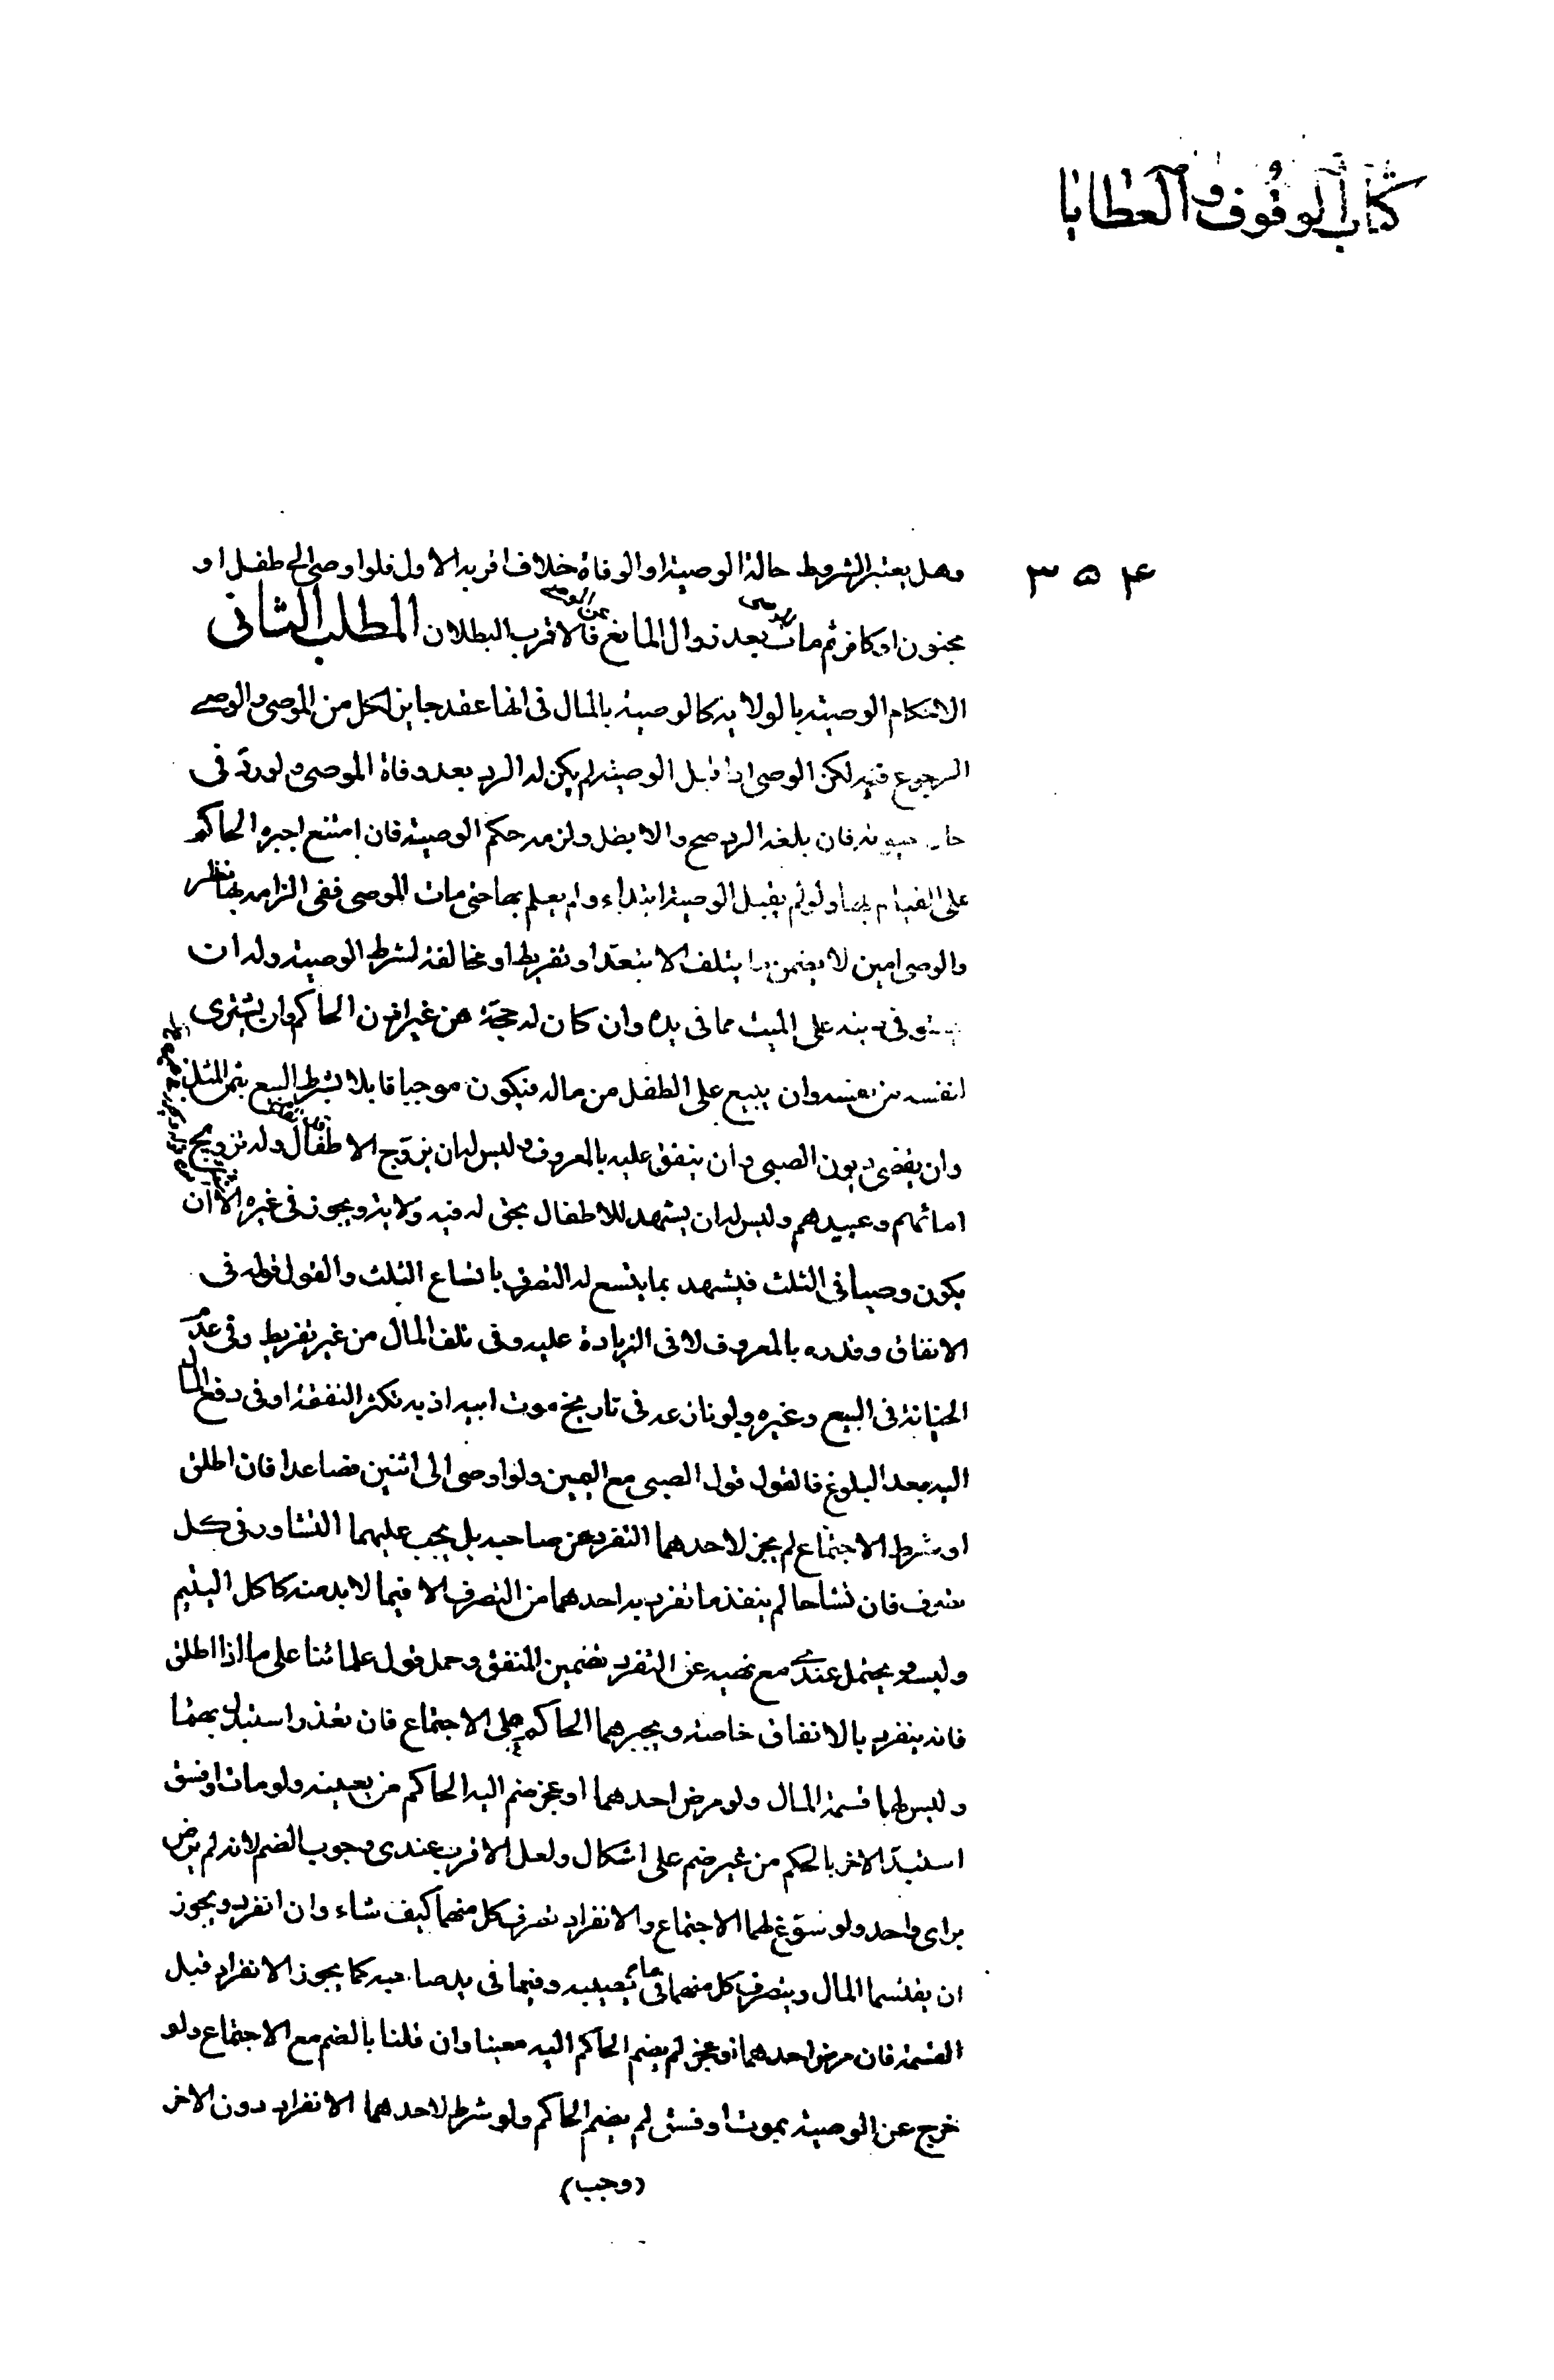 كتاب الوقوف والعطايا
۳۵۴
وهل يعتبر الشروط حالة الوصية او الوفاة خلاف اقربه الاول فلو اوصى الى طفل او
مجنون او كافر ثم مات الموصى بعد زوال المانع عن الوصي فالاقرب البطلان المطلب الثانى
الاحكام الوصية بالولاية كالوصية بالمال فى انها عقد جايز لكل من الموصى والوصى
الرجوع فيه لكن الوصى اذا قبل الوصية لم يكن له الرد بعد وفاة الموصى ولو رد فى
حال حيوته فان بلغه الرد صح والا بطل ولزمه حكم الوصية فان امتنع اجبره الحاكم
على القيام بها ولو لم يقبل الوصية ابتداء ولم يعلم بها حتى مات الموصى ففى الزامه بها نظر
والوصى امين لا يضمن ما يتلف الا بتعد او تفريط او مخالفة لشرط الوصية وله ان
يستوفى دينه على الميت مما فى يده وان كان له حجة من غير اذن الحاكم وان يشترى
لنفسه من نفسه وان يبيع على الطفل من ماله فيكون موجبا قابلا بشرط البيع بثمن المثل
وان يقضى ديون الصبى وان ينفق عليه بالمعروف وليس له ان يزوج الاطفال وله تزويج
امائهم وعبيدهم وليس له ان يشهد للاطفال بحق له فيه ولاية ويجوز فى غيره الا ان
يكون وصيا فى الثلث فيشهد بما يتسع له التصرف باتساع الثلث والقول قوله فى
الانفاق وقدره بالمعروف لا فى الزيادة عليه وفى تلف المال من غير تفريط وفى عدم
الخيانة فى البيع وغيره ولو نازعه فى تاريخ موت ابيه اذ به تكثر النفقة او فى دفع المال
اليه بعد البلوغ فالقول قول الصبى مع اليمين ولو اوصى الى اثنين فصاعدا فان اطلق
او شرط الاجتماع لم يجز لاحدهما التفرد عن صاحبه بل يجب عليهما التشاور فى كل
تصرف فان تشاحا لم ينفذ ما تفرد به احدهما من التصرف الا فيما لا بد منه كاكل اليتيم
ولبسه ويحتمل عندى مع نهيه عن التفرد تضمين المنفق وحمل قول علمائنا على ما اذا اطلق
فانه ينفرد بالانفاق خاصة ويجبرهما الحاكم على الاجتماع فان تعذر استبدل بهما
وليس لهما قسمة المال ولو مرض احدهما او عجز ضم اليه الحاكم من يعينه ولو مات او فسق
استبد الاخر بالحكم من غير ضم على اشكال ولعل الاقرب عندى وجوب الضم لانه لم يرض
براى واحد ولو سوغ لهما الاجتماع والانفراد تصرف كل منهما كيف شاء وان انفرد ويجوز
ان يقتسما المال ويتصرف كل منهما فى نصيبه وفيما فى يد صاحبه كما يجوز الانفراد قبل
القسمة فان مرض احدهما او عجز لم يضم الحاكم اليه معينا وان قلنا بالضم مع الاجتماع ولو
خرج عن الوصية بموت او فسق لم يضم الحاكم ولو شرط لاحدهما الانفراد دون الاخر
(وجب)